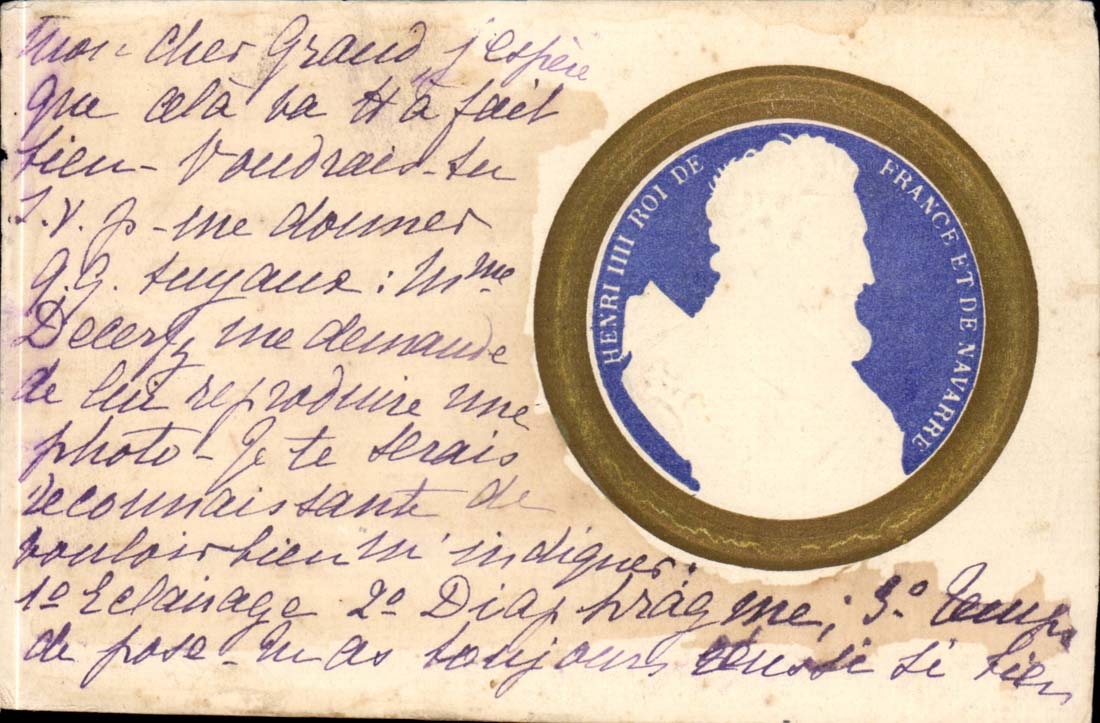 Mon cher Grand, j'espère
que celà va tt à fait
bien - Voudrais-tu
S. V. P - me donner
q.q. tuyaux : Mme
Decerfz me demande
de lui reproduire une
photo - Je te serais
reconnaissante de
vouloir bien m'indiquer :
1º Eclairage 2º Diaphragme ; 3º Temps
de pose - Tu as toujours réussi si bien
HENRI IIII ROI DE FRANCE ET DE NAVARRE